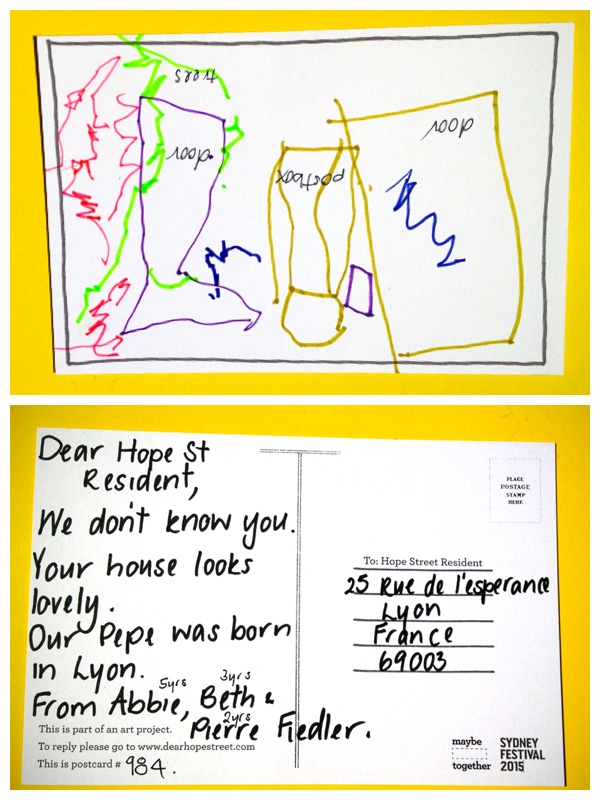 trees
door
door
postbox
Dear Hope St
Resident,
We don't know you.
Your house looks
lovely.
Our Pepe was born
in Lyon.
5yrs 3yrs
From Abbie, Beth &
2yrs
Pierre Fiedler.
This is part of an art project.
To reply please go to www.dearhopestreet.com
This is postcard # 984.
PLACE
POSTAGE
STAMP
HERE
To: Hope Street Resident
25 Rue de l'esperance
Lyon
France
69003
maybe
together
SYDNEY
FESTIVAL
2015